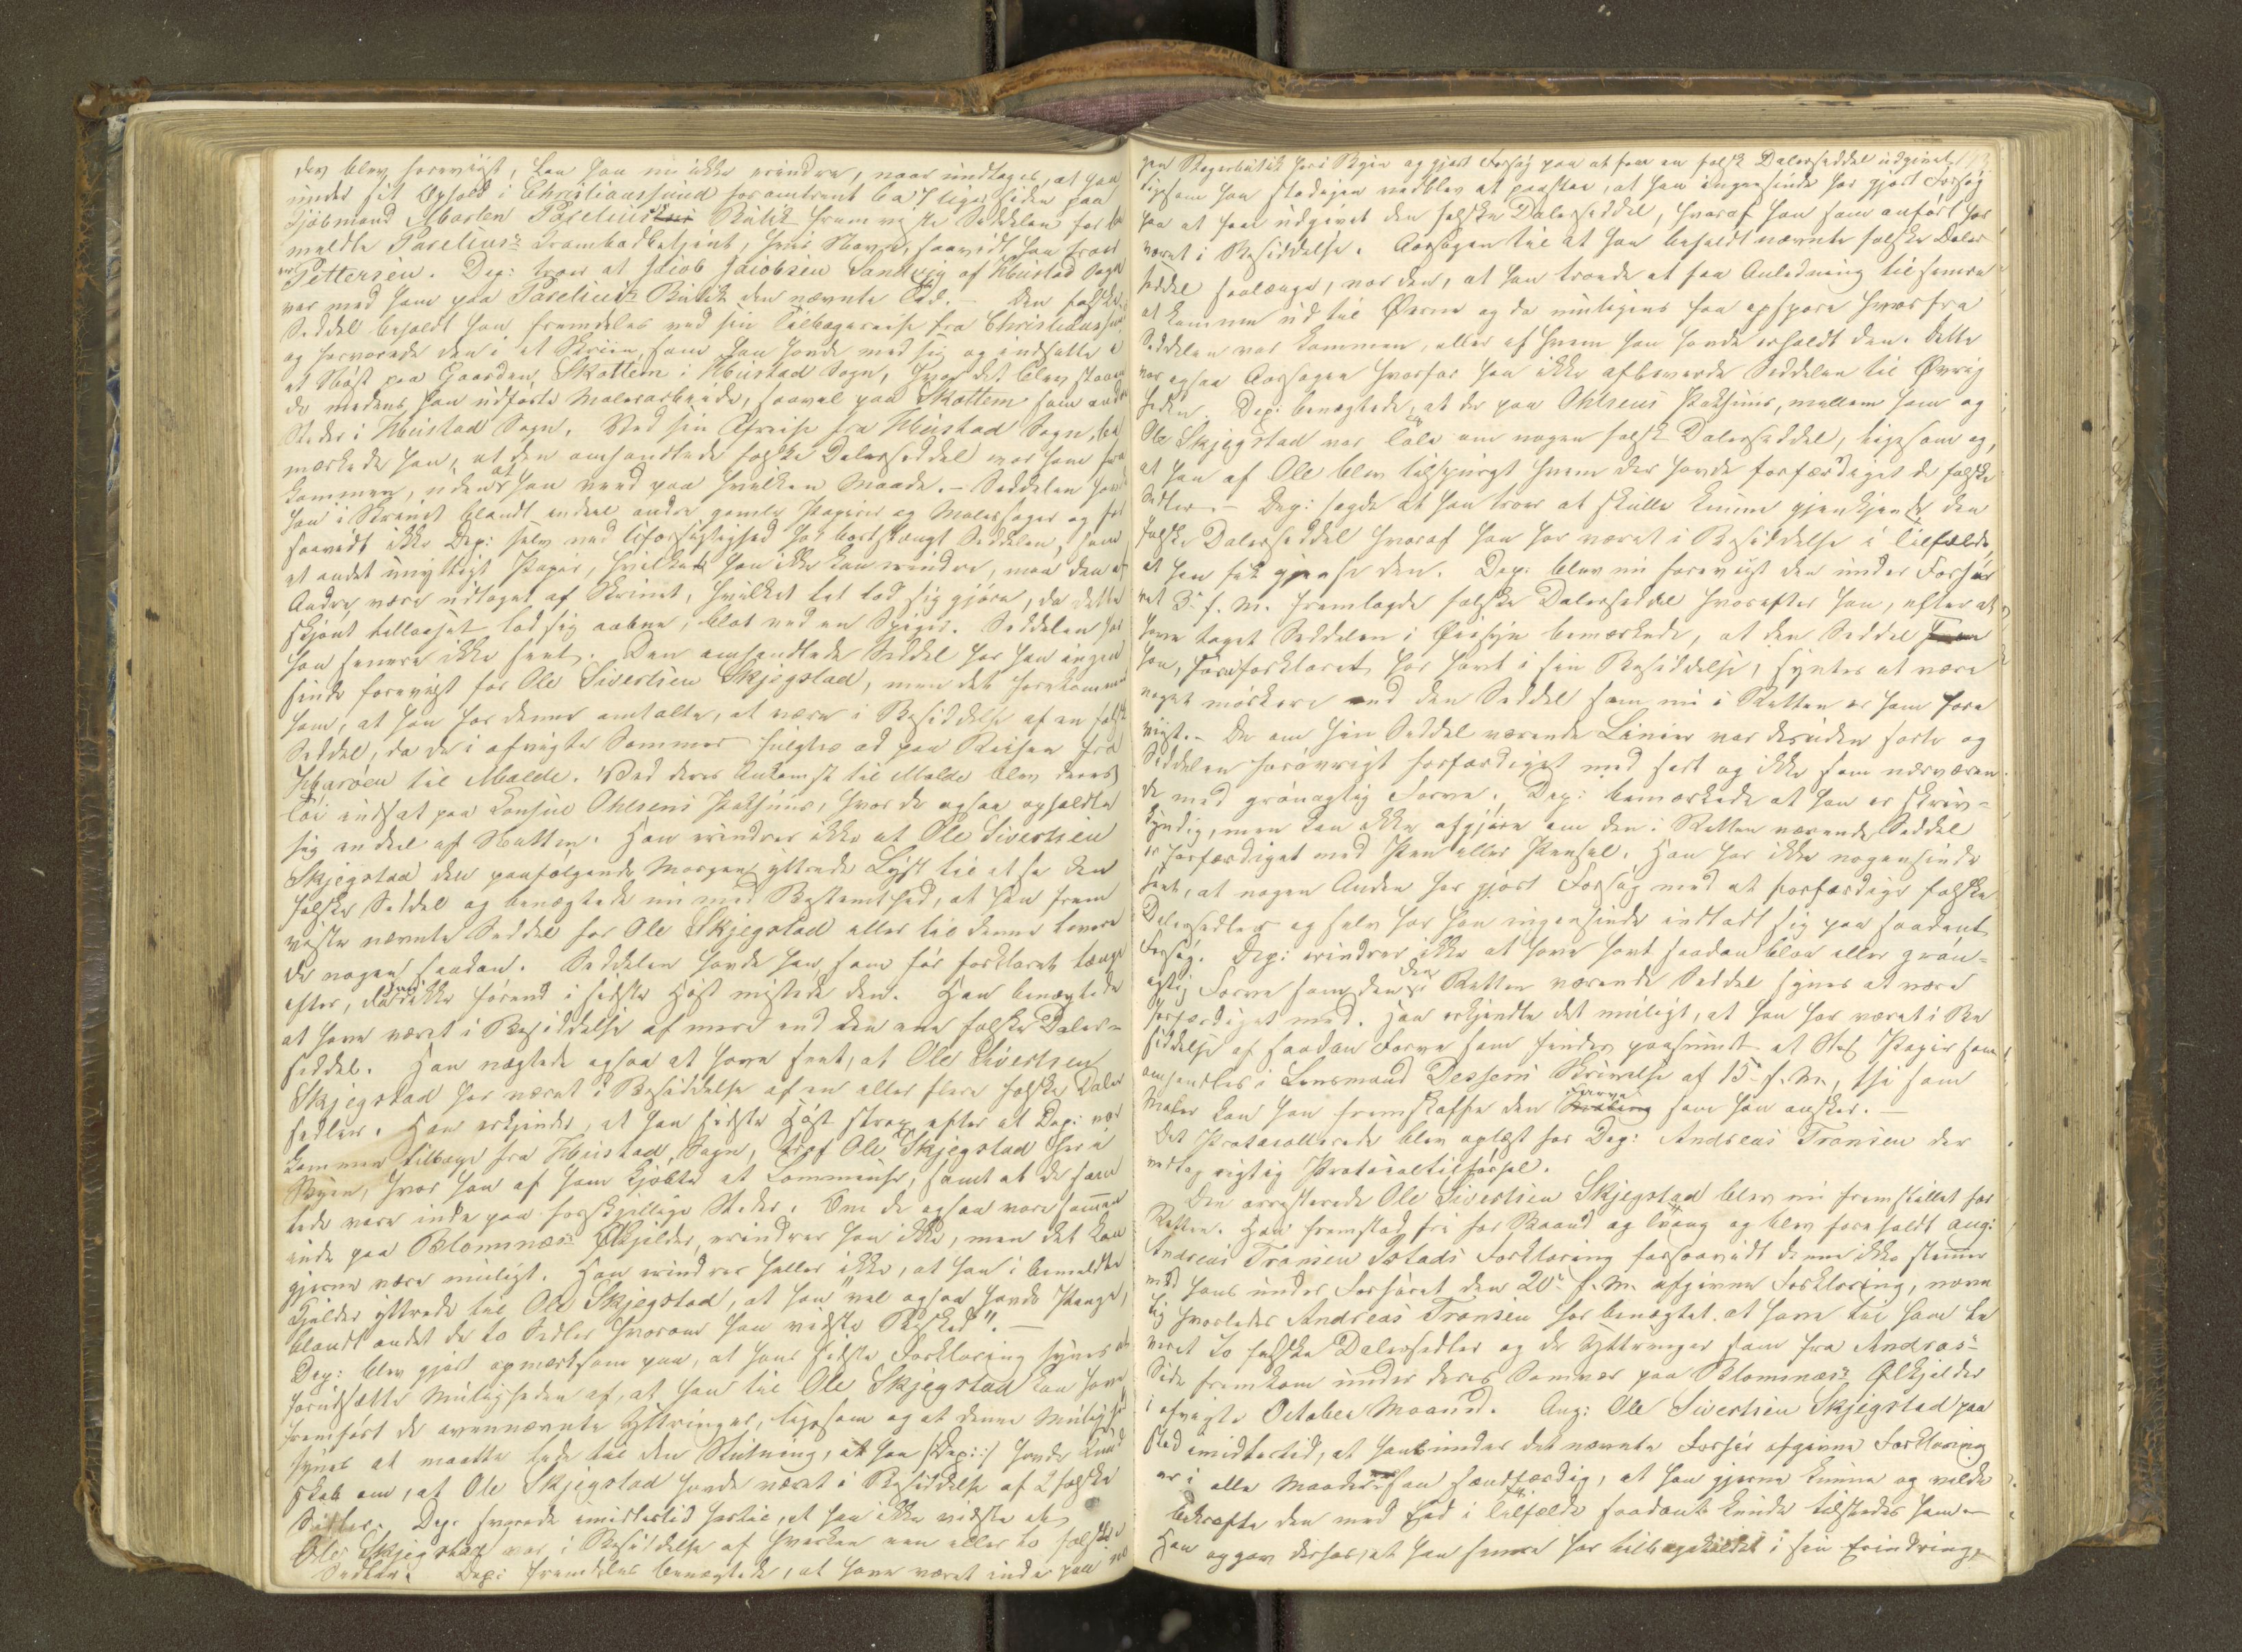 den blev foreviist, kan han nu ikke erindre, naar undtages, at han
under sit Ophold i Christianssund for omtrent 6 a 7 Uger siden paa
Kjöbmand Morten Parelius's Butik fremviste Seddelen for be
meldte Parelius's Krambodbetjent, hvis Navn, saavidt han troer
er Pettersen. Dep: troer at Jacob Jacobsen Sandvig af Bustad Sogn
var med ham paa Parelius's Butik den nævnte Tid. – Den falske
Seddel beholdt han fremdeles ved sin Tilbagereise fra Christianssund
og forvarede den i et Skriin, som han havde med sig og indsatte i
et Nöst paa Gaarden Skottem i Bustad Sogn, hvor det blev staaen
de medens han udförte Malerarbeide, saavel paa Skottem som andre
Steder i Bustad Sogn. Ved sin Afreise fra Bustad Sogn, be
mærkede han, at den omhandlede falske Dalerseddel var ham fra
kommen, uden at han veed paa hvilken Maade. – Seddelen havde
han i Skrinet blandt endeel andre gamle Papirer og Malersager og for
saavidt ikke Dep: selv ved Uforsigtighed har bortslængt Seddelen, som
et andet unyttigt Papir, hvilket han ikke kan erindre, maa den af
Andre være udtaget af Skrinet, hvilket let lod sig gjöre, da dette
skjönt tillaaset lod sig aabne, blot ved en Spiger. Seddelen har
han senere ikke seet. Den omhandlede Seddel har han ingen
sinde foreviist for Ole Sivertsen Skjegstad, men det forekommer
ham, at han for denne omtalte, at være i Besiddelse af en falsk
Seddel, da de i afvigte Sommer fulgtes ad paa Reisen fra
Haröen til Molde. Ved deres Ankomst til Molde blev deres
Töi indsat paa Consul Ohlsens Pakhuus, hvor de ogsaa opholdte
sig endeel af Natten. Han erindrer ikke at Ole Sivertsen
Skjegstad den paafölgende Morgen yttrede Lyst til at se den
falske Seddel og benægtede nu med Bestemthed, at han frem
viste nævnte Seddel for Ole Skjegstad eller til denne levere
de nogen saadan. Seddelen havde han, som för forklaret længe
efter, da han ikke förend i sidste Höst mistede den. Han benægtede
at have været i Besiddelse af mere end den ene falske Daler-
seddel. Han nægtede ogsaa at have seet, at Ole Sivertsen
Skjegstad har været i Besiddelse af en eller flere falske Daler
sedler. Han erkjender, at han sidste Höst strax efter at Dep: var
kommen tilbage fra Bustad Sogn, traf Ole Skjegstad her i
Byen, hvor han af ham kjöbte et Lommeuhr, samt at de sam
tede vare inde paa forskjellige Steder. Om de ogsaa vare sammen
inde paa Blomnæs's Ölkjelder, erindrer han ikke, men det kan
gjerne være muligt. Han erindrer heller ikke, at han i bemeldte
Kjelder yttrede til Ole Skjegstad, at han "vel ogsaa havde Penge,
blandt andet de to Sedler hvorom han vidste Besked". –
Dep: blev gjort opmærksom paa, at hans sidste Forklaring synes at
forudsætte Muligheden af, at han til Ole Skjegstad kan have
fremfört de ovennævnte Yttringer, ligesom og at denne Mulighed
synes at maatte lede til den Slutning, at han /:Dep::/ havde Kund
skab om, at Ole Skjegstad havde været i Besiddelse af 2 falske
Sedler. Dep: svarede imidlertid hertil, at han ikke vidste at
Ole Skjegstad var i Besiddelse af hverken een eller to falske
Sedler. Dep: fremdeles benægtede, at have været inde paa no
gen Bagerbutik her i Byen og gjort Forsög paa at faae en falsk Dalerseddel udgivet,
ligesom han stedsegen vedblev at paastaae, at han ingensinde har gjort Forsög
paa at faae udgivet den falske Dalerseddel, hvoraf han som anfört har
været i Besiddelse. Aarsagen til at han beholdt nævnte falske Daler
seddel saalænge, var den, at han troede at faa Anledning til senere
at komme ud til Öerne og da muligens faa opspore hvorfra
Seddelen var kommen, eller af hvem han havde erholdt den. Dette
var ogsaa Aarsagen hvorfor han ikke afleverede Seddelen til Övrig
heden. Dep: benægtede, at der paa Ohlsens Pakhuus, mellem ham og
Ole Skjegstad var Tale om nogen falsk Dalerseddel, ligesom og,
at han af Ole blev tilspurgt hvem der havde forfærdiget de falske
Sedler. – Dep: sagde at han troer at skulle kunne gjenkjende den
falske Dalerseddel hvoraf han har været i Besiddelse i Tilfælde
at han fik gjense den. Dep: blev nu foreviist den under Forhö
ret 3die f. M. fremlagde falske Dalerseddel hvorefter han, efter at
have taget Seddelen i Öiesyn bemærkede, at den Seddel
han, som forklaret har havt i sin Besiddelse, syntes at være
noget mörkere end den Seddel som nu i Retten er ham fore
viist. – De om hiin Seddel værende Linier var desuden sorte og
Seddelen foröwrigt forfærdiget med sort og ikke som nærværen
de med grönagtig Farve. Dep: bemærkede at han er skriv-
kyndig, men kan ikke afgjöre om den i Retten værende Seddel
er forfærdiget med Pen eller Pensel. Han har ikke nogensinde
seet, at nogen Anden har gjort Forsög med at forfærdige falske
Dalersedler og selv har han ingensinde indladt sig paa saadant
Forsög. Dep: erindrer ikke at have havt saadan blaa eller grön-
agtig Farve som den den i Retten værende Seddel synes at være
forfærdiget med. Han erkjendte det muligt, at han har været i Be
siddelse af saadan Farve som findes paasmurt et Stk Papir som
omhandles i Lensmand Dessens Skrivelse af 15de f. M., thi som
Maler kan han fremskaffe den Farve som han ønsker. –
Det Protocollerede blev oplæst for Dep: Andreas Transen der
vedtog rigtig Protocoltilförsel.
Den arresterede Ole Sivertsen Skjegstad blev nu fremstillet for
Retten. Han fremstod fri for Baand og Tvang og blev foreholdt Ang:
Andreas Transen Istads Forklaring forsaavidt denne ikke stemmer
med hans under Forhöret den 20de f. M. afgivne Forklaring, navn
lig hvorledes Andreas Transen har benægtet at have til ham le
veret to falske Dalersedler og de Yttringer som fra Andreas's
Side fremkom under deres Samvær paa Blomnæs's Ölkjelder
i afvigte October Maaned. Ang: Ole Sivertsen Skjegstad paa
stod imidlertid, at hans under det nævnte Forhör afgivne Forklaring
er i alle Maader saa sandfærdig, at han gjerne kunne og vilde
bekræfte den med Eed i Tilfælde saadant kunde tilstedes ham –
Han opgav derhos, at han senere har tilbagekaldt i sin Erindring